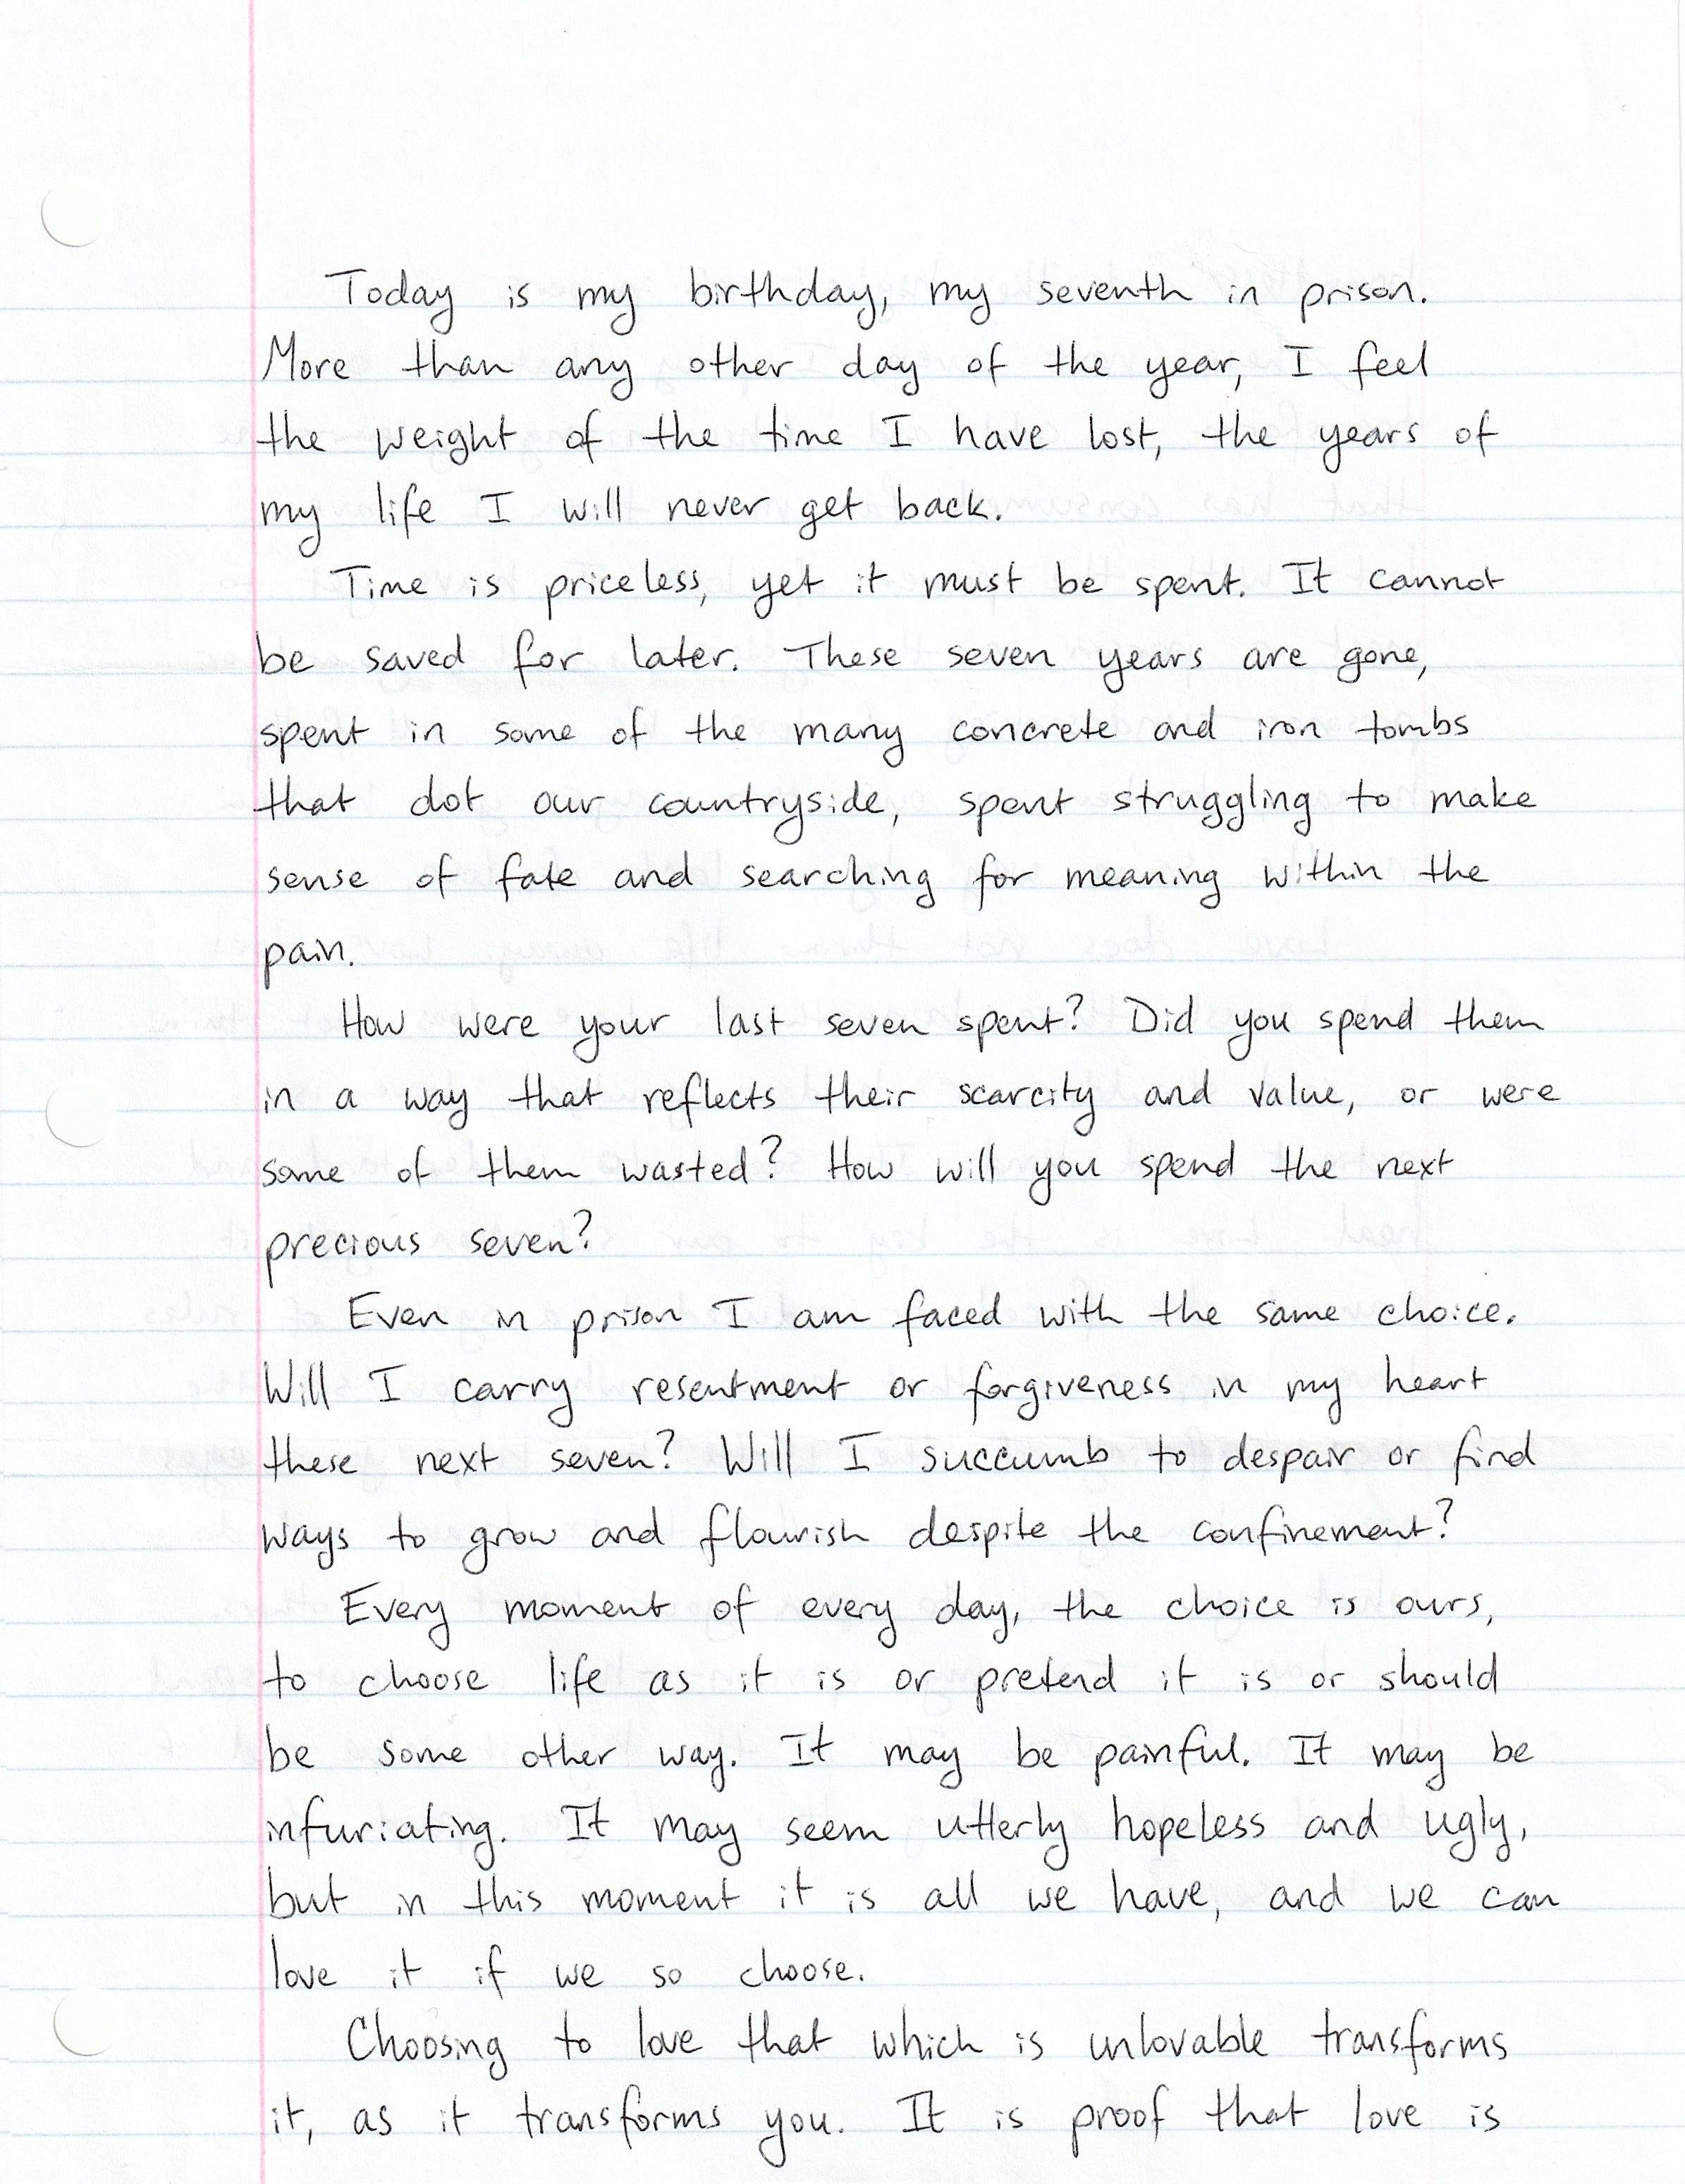 Today is my birthday, my seventh in prison.
More than any other day of the year, I feel
the weight of the time I have lost, the years of
my life I will never get back.
Time is priceless, yet it must be spent. It cannot
be saved for later. These seven years are gone,
spent in some of the many concrete and iron tombs
that dot our countryside, spent struggling to make
sense of fate and searching for meaning within the
pain.
How were your last seven spent? Did you spend them
in a way that reflects their scarcity and value, or were
some of them wasted? How will you spend the next
precious seven?
Even in prison I am faced with the same choice.
Will I carry resentment or forgiveness in my heart
these next seven? Will I succumb to despair or find
ways to grow and flourish despite the confinement?
Every moment of every day, the choice is ours,
to choose life as it is or pretend it is or should
be some other way. It may be painful. It may be
infuriating. It may seem utterly hopeless and ugly,
but in this moment it is all we have, and we can
love it if we so choose.
Choosing to love that which is unlovable transforms
it, as it transforms you. It is proof that love is